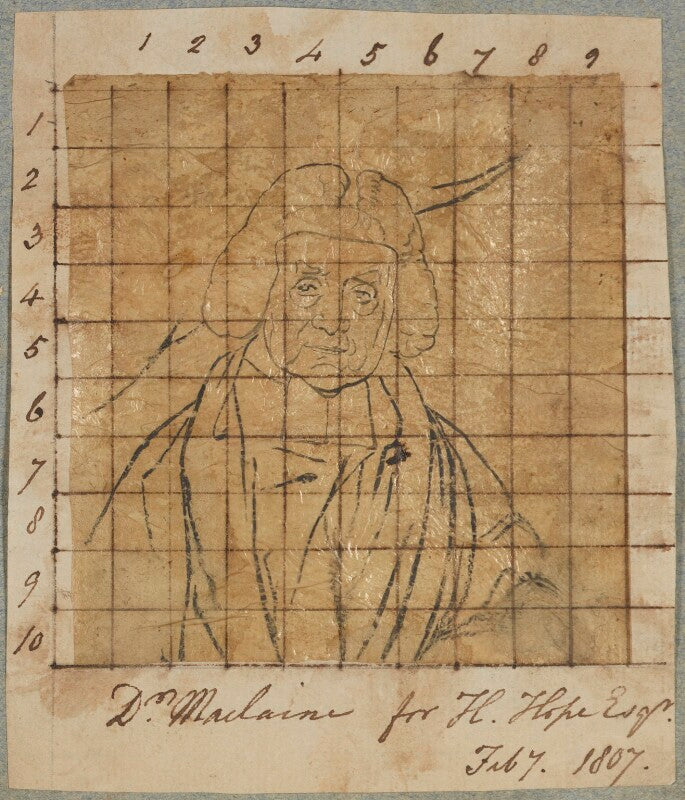 1 2 3 4 5 6 7 8 9
1
2
3
4
5
6
7
8
9
10
Dr. Maclaine for H. Hope Esqr.
Feb 7. 1807.